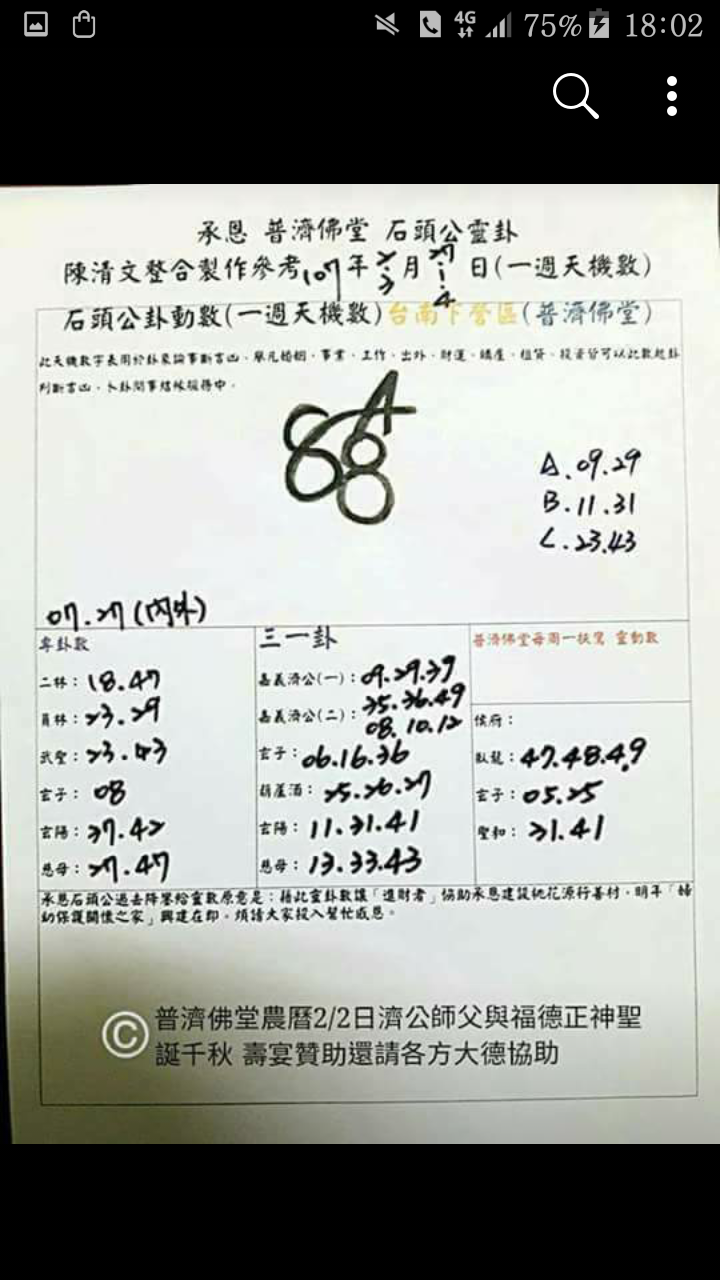 4G 75% 18:02
承恩 普濟佛堂 石頭公靈卦
陳清文整合製作參考107年2…3月27…4日(一週天機數)
石頭公卦動數(一週天機數)台南下營區(普濟佛堂)
此天機數字表用於卦象論事斷吉凶、舉凡婚姻、事業、工作、出外、財運、購產、租賃、投資皆可以此數起卦
判斷吉凶、卜卦問事結帳服務中.
A
68
A.09.29
B.11.31
C.23.43
07.27(內外)
專卦數
二林：18.47
員林：23.29
武聖：23.43
玄子：08
玄陽：27.42
慈母：27.47
三一卦
嘉義濟公(一)：09.29.39
嘉義濟公(二)：25.36.49
08.10.12
玄子：06.16.36
葫蘆酒：25.26.27
玄陽：11.31.41
慈母：13.33.43
普濟佛堂每周一扶鸞 靈動數
侯府：
臥龍：47.48.49
玄子：05.25
聖和：21.41
承恩石頭公過去降筆給靈數原意是：藉此靈卦數讓「進財者」協助承恩建設桃花源行善村，明年「婦
幼保護關懷之家」興建在即，煩請大家投入幫忙感恩。
© 普濟佛堂農曆2/2日濟公師父與福德正神聖
誕千秋 壽宴贊助還請各方大德協助